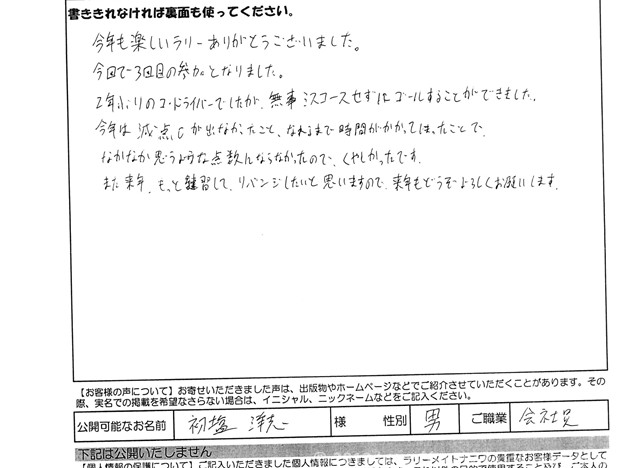 書ききれなければ裏面も使ってください。
今年も楽しいラリーありがとうございました。
今回で3回目の参加となりました。
2年ぶりのコ・ドライバーでしたが、無事ミスコースせずにゴールすることができました。
今年は減点Cが出なかったこと、なれるまで時間がかかってしまったことで、
なかなか思うような点数にならなかったので、くやしかったです。
また来年、もっと練習して、リバンジしたいと思いますので、来年もどうぞよろしくお願いします。
【お客様の声について】お寄せいただきました声は、出版物やホームページなどでご紹介させていただくことがあります。その
際、実名での掲載を希望なさらない場合は、イニシャル、ニックネームなどをご記入ください。
公開可能なお名前 初塩 洋志 様 性別 男 ご職業 会社員
下記は公開いたしません
【個人情報の保護について】ご記入いただきました個人情報につきましては、ラリーメイトナニワの貴重なお客様データとして